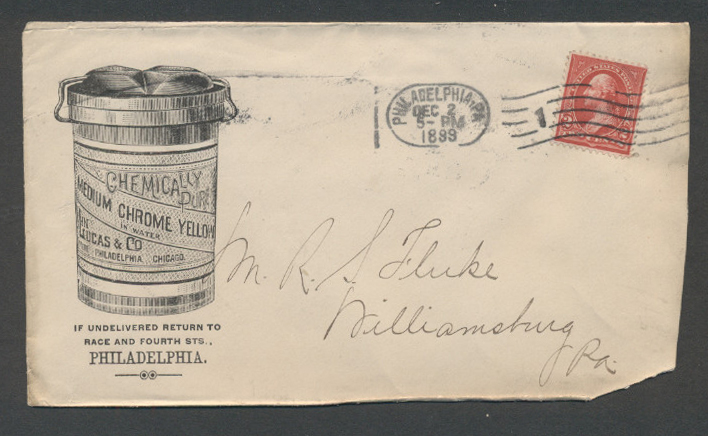 CHEMICALLY
PURE
MEDIUM CHROME YELLOW
IN WATER
LUCAS & CO
PHILADELPHIA, CHICAGO.
IF UNDELIVERED RETURN TO
RACE AND FOURTH STS.,
PHILADELPHIA.
PHILADELPHIA, PA.
DEC 2
5- PM
1899
1
M. R. S. Fluke
Williamsburg
Pa.